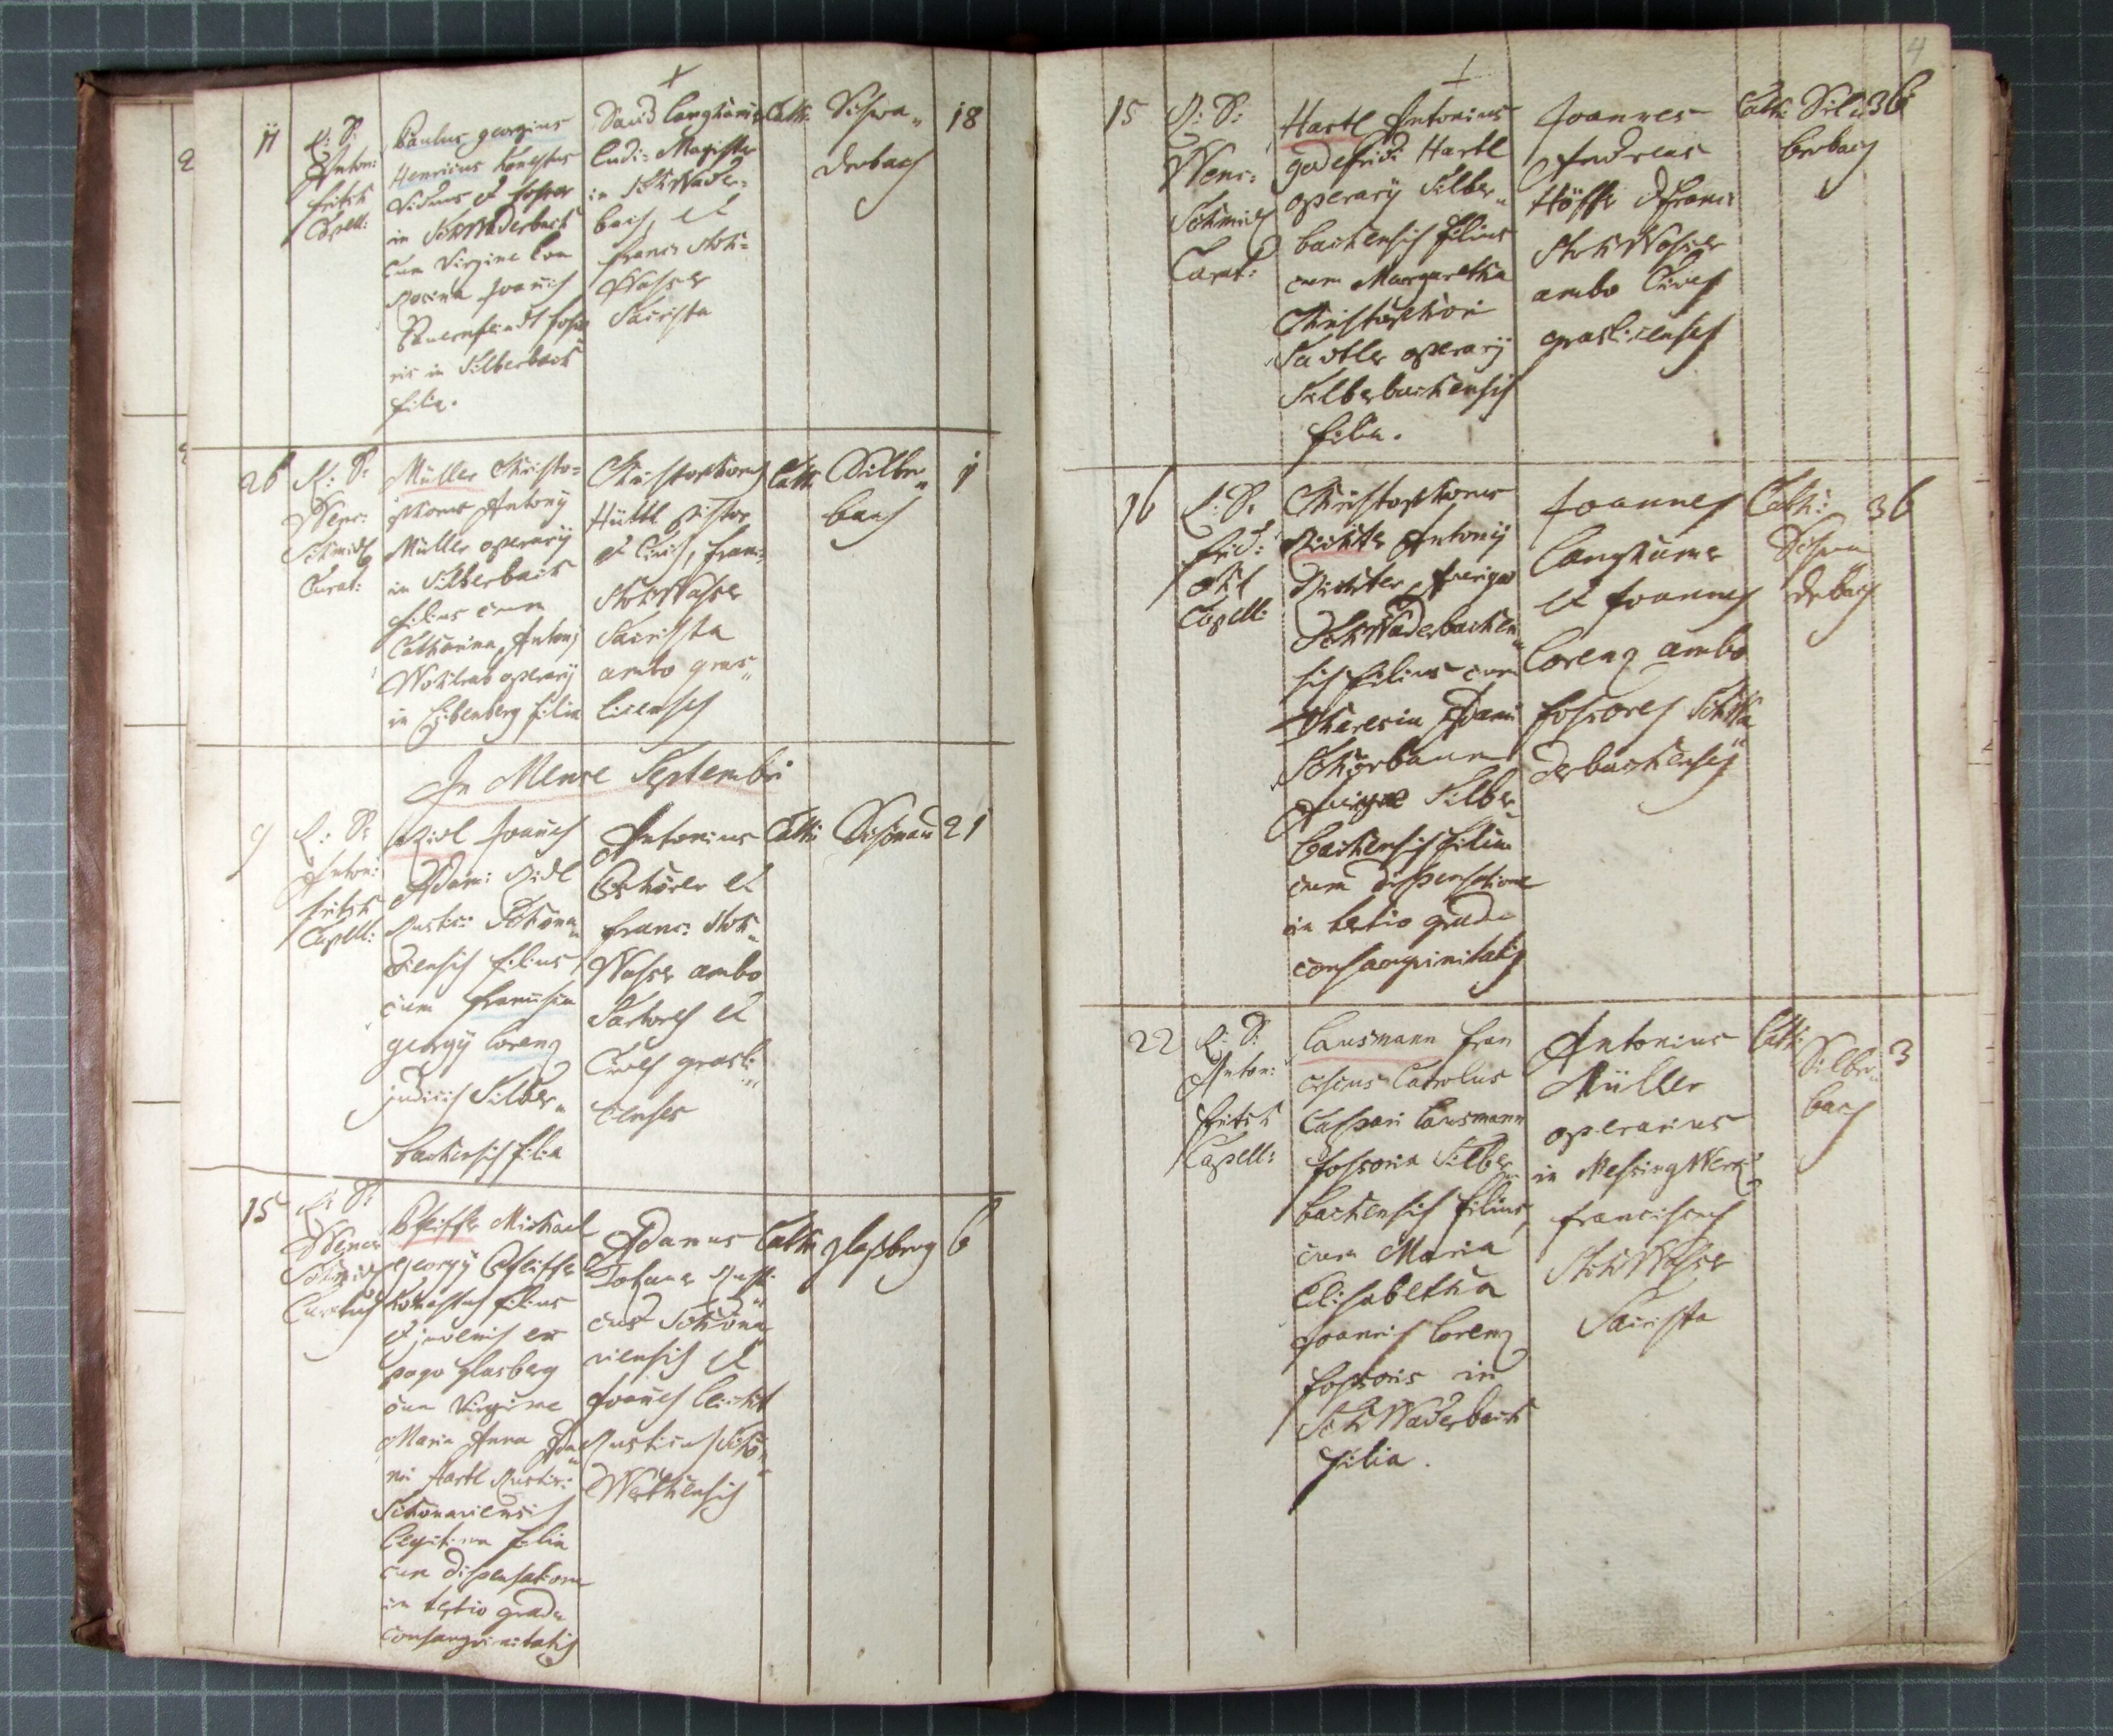 11
R: D:
Anton:
Fritsch
Capell:
Paulus georgius
Henricus honestus
Viduus et fossor
in Schwaderbach
cum Virgine
Rosina Joannis
in Silberbach
filia.
David Langhamer
Ludi-Magister
in Schwader-
bach, et
Franc: Stok-
Wasser
Sacrista
Cath:
Schwa„
derbach
18
26
R: D:
Wenc:
Schmidl
Curat:
Müller Christo-
phorus Antonÿ
Müller operarÿ
in Silberbach
filius cum
Catharina Antonj
operarÿ
in Eibenberg filia
Christophorus
Hüttl pistor
et Civis, Franc:
StokWasser
Sacrista
ambo gras„
licenses
Cath:
Silber„
bach
In Mense Septembri
9
R: D:
Anton:
Fritsch
Capell:
Ridl Joanes
Adami Ridl
Rustici Schönau„
iensis filius,
cum Francisca
georgÿ Lorenz
judicis Silber„
bachensis filia
Antonius
et
Franc: Stok„
Wasser ambo
Sartores et
Cives grasli„
censes
Cath:
Schönau
21
15
R: D:
Wenc:
Schmidl
Curatus
Pfeiffer Michael
georgÿ Pfeiffer
honestus filius
et juvenis ex
pago glasberg
cum Virgine
Maria Anna Ada„
mi Hartl Rustici
Schönauiensis
Legitima filia
cum dispensatione
in tertio gradu
consanguinitatis
Adamus
Rusti„
cus Schöna„
viensis et
Joanes
Rusticus Schön„
Werthensis
Cath:
glasberg
6
4
15
R: D:
Wenc:
Schmidl
Curat:
Hartl Antonius
godefridi Hartl
operarÿ Silber„
bachensis filius
cum Margaretha
Christophori
Sattler operarÿ
Silberbachensis
filia.
Joannes
Andreas
Höffer et Franc:
StokWasser
ambo Cives
graslicenses
Cath:
Silberbach
36
16
R: D:
Frid:
Capell:
Christophorus
Richter Antonÿ
Richter
Schwaderbachen„
sis filius cum
Theresia Adami
Silber„
bachensis filia
cum dispensatione
in tertio gradu
consanguinitatis
Joannes
Langhamer
et Joannes
Lorenz ambo
fossores Schwa„
derbachenses
Cath:
Schwa
derbach
36
22
R: D:
Anton:
Fritsch
Capell:
Lausmann Fran
ciscus Carolus
Caspari Lausmann
fossoris Silber„
bachensis filius,
cum Maria
Elisabetha
Joannis Lorenz
fossoris in
Schwaderbach
filia.
Antonius
Müller
operarius
in MessingWerk
Franciscus
StokWasser
Sacrista
Cath:
Silber„
bach
3